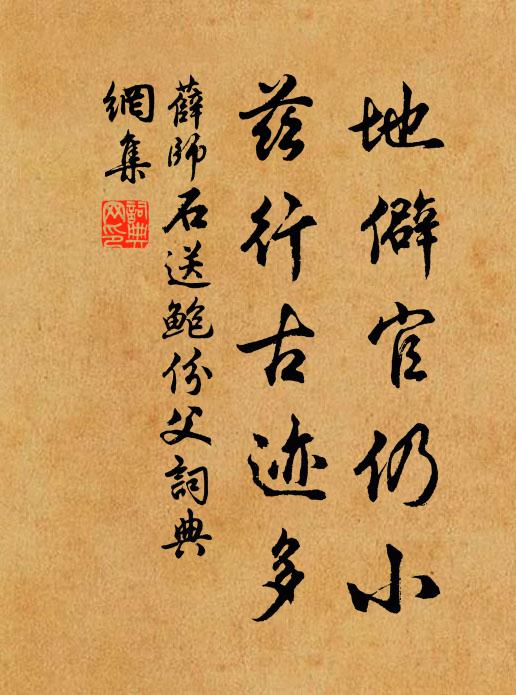 地僻官仍小
茲行古迹多
薛師石送鮑份父詞典
網集
詞典
网印